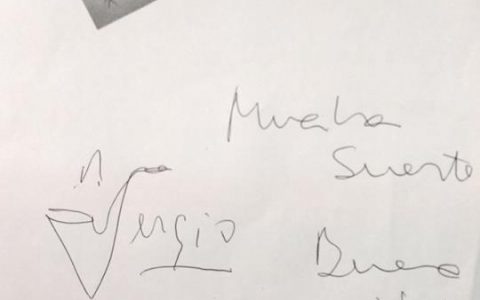 Mucha
Suerte
Sergio
Buena